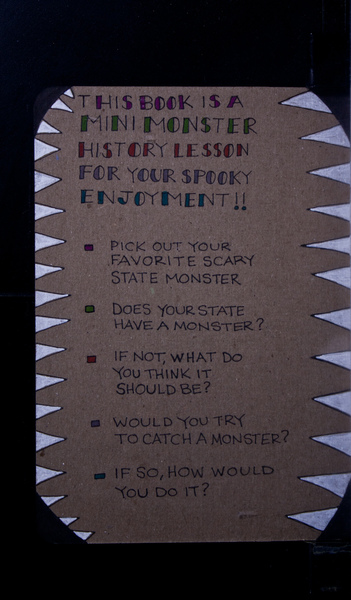 THIS BOOK IS A
MINI MONSTER
HISTORY LESSON
FOR YOUR SPOOKY
ENJOYMENT!!
PICK OUT YOUR
FAVORITE SCARY
STATE MONSTER
DOES YOUR STATE
HAVE A MONSTER?
IF NOT, WHAT DO
YOU THINK IT
SHOULD BE?
WOULD YOU TRY
TO CATCH A MONSTER?
IF SO, HOW WOULD
YOU DO IT?